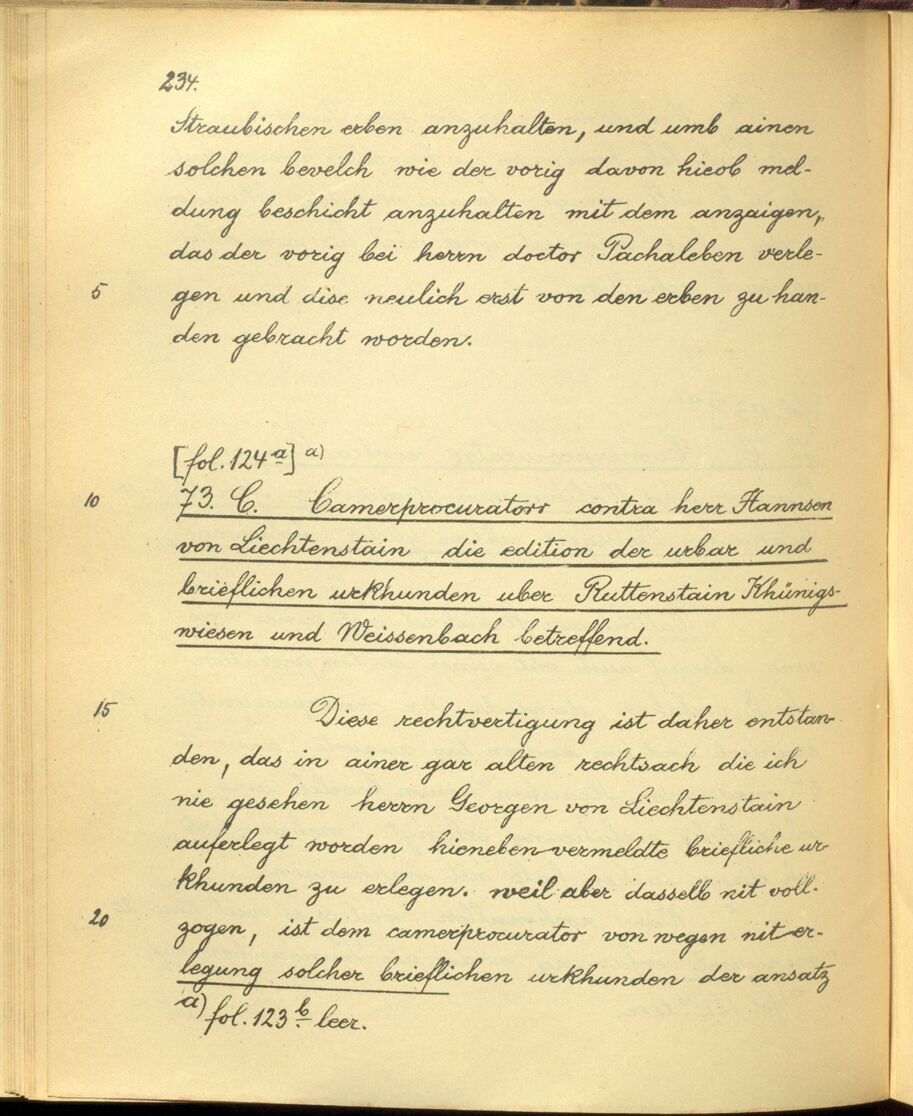 234.
Straubischen erben anzuhalten, und umb ainen
solchen bevelch wie der vorig davon hieob mel-
dung beschicht anzuhalten mit dem anzaigen,
das der vorig bei herrn doctor Pachaleben verle-
5 gen und dise neulich erst von den erben zu han-
den gebracht worden.
[fol. 124 a] a)
10 73. C. Camerprocurators contra herr Hannsen
von Liechtenstain die edition der urbar und
brieflichen urkhunden uber Ruttenstain Khünigs-
wiesen und Weissenbach betreffend.
15 Diese rechtvertigung ist daher entstan-
den, das in ainer gar alten rechtsach die ich
nie gesehen herrn Georgen von Liechtenstain
auferlegt worden hieneben vermeldte briefliche ur-
khunden zu erlegen. weil aber dasselb nit voll-
20 zogen, ist dem camerprocurator von wegen nit er-
legung solcher brieflichen urkhunden der ansatz
a) fol. 123 b leer.